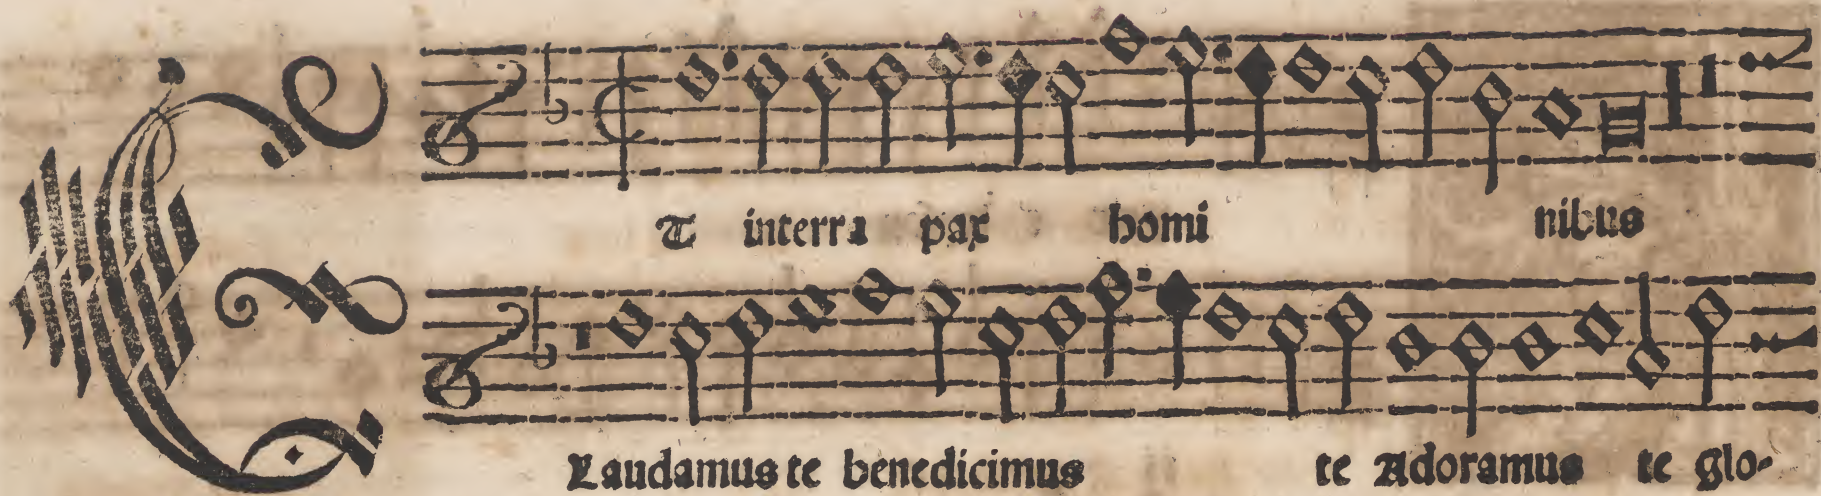 ET interra pax homi nibus
Laudamus te benedicimus te Adoramus te glo-